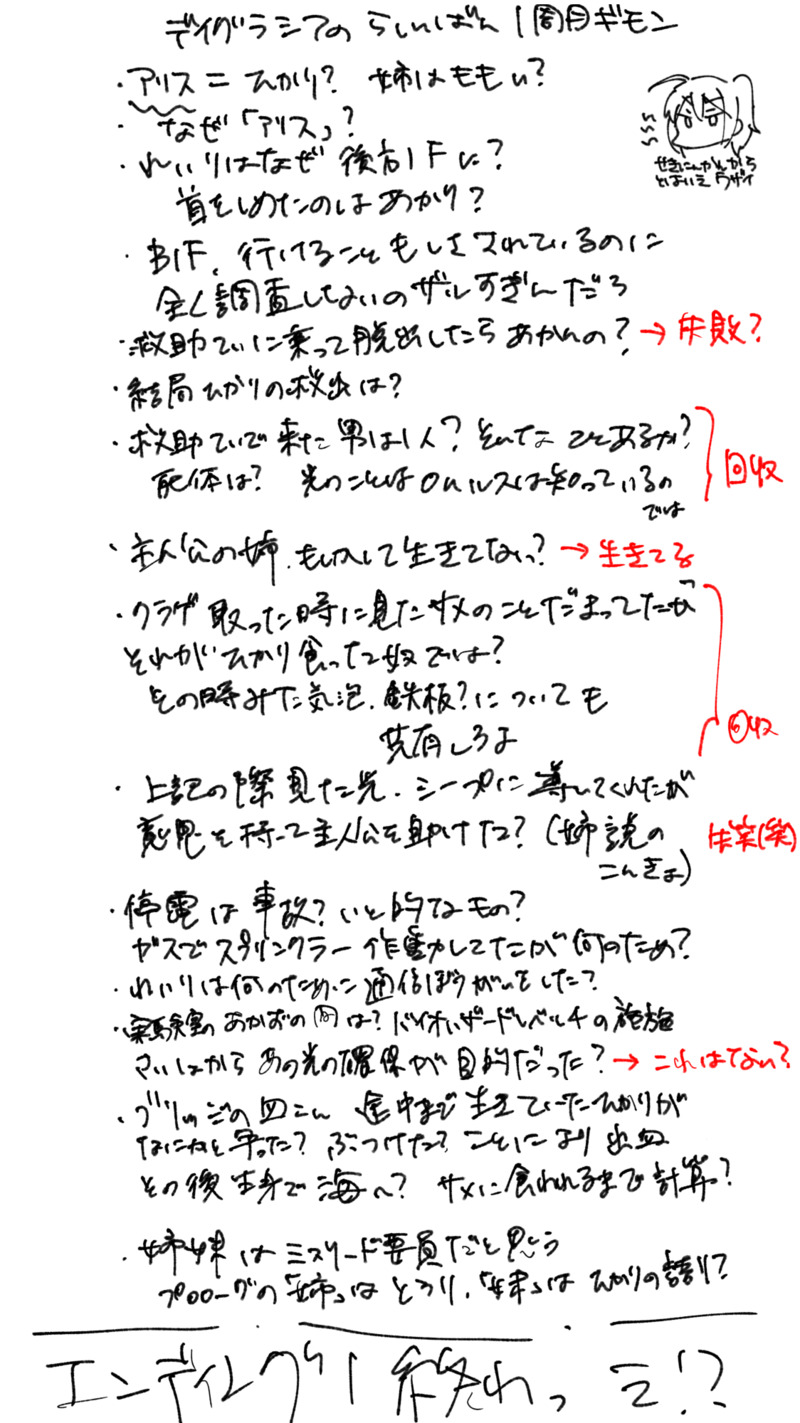 デイグラシアの らしんばん 1周目ギモン
・アリス=ひかり? 姉はももい?
・なぜ「アリス」?
・れいりはなぜ 後方1Fに?
首をしめたのはあかり?
せきにんかんから
とはいえ ウザイ
・B1F、行けることもしさされているのに
全く調査してないのザルすぎんだろ
・救助ていに乗って脱出したらあかんの?→失敗?
・結局ひかりの救出は?
・救助ていで来た男は1人?そんなことあるか?
死体は? 光のことはOuルスは知っているの
では
回収
・主人公の姉、もしかして生きてない?→生きてる
・クラゲ取った時に見たサメのことだまってたが
それがひかり食った奴では?
その時みた気泡、鉄板?についても
共有しろよ
回収
・上記の際見た光、シープに導いてくれたが
意思を持って主人公を助けた?(姉説の
こんきょ)
・停電は事故?いと的なもの?
ガスでスプリンクラー作動してたが何のため?
・れいりは何のために通信ぼうがいをした?
・実験室のあかずの間は?バイオハザードレベル4の施設
さいしょからあの光の確保が目的だった?→これはない?
・ブリッジの血こん 途中まで生きていたひかりが
なにかを ぶつけた?ことにより出血
その後生身で海へ? サメに食われるまで計算?
・姉妹はミスリード要員だと思う
プロローグの「姉」はとうり、「妹」はひかりの誤り?
エンディング1終われっ え!?